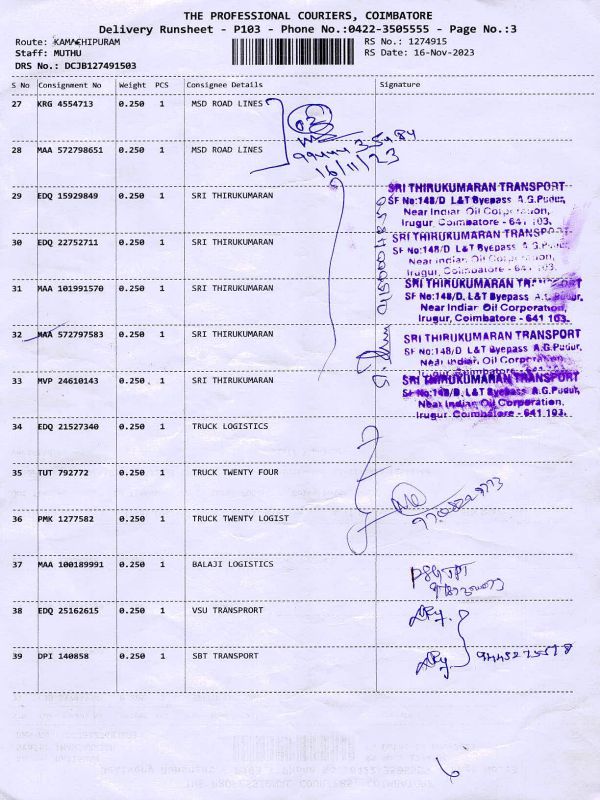 THE PROFESSIONAL COURIERS, COIMBATORE
Delivery Runsheet - P103 - Phone No.:0422-3505555 - Page No.:3
Route: KAMACHIPURAM RS No.: 1274915
Staff: MUTHU RS Date: 16-Nov-2023
DRS No.: DCJB127491503
S No Consignment No Weight PCS Consignee Details Signature
27 KRG 4554713 0.250 1 MSD ROAD LINES
28 MAA 572798651 0.250 1 MSD ROAD LINES
16/11/23
29 EDQ 15929849 0.250 1 SRI THIRUKUMARAN
SRI THIRUKUMARAN TRANSPORT
SF No:148/D L&T Byepass A.G.Pudur,
Near Indian Oil Corporation,
Irugur, Coimbatore - 641 103.
30 EDQ 22752711 0.250 1 SRI THIRUKUMARAN
SRI THIRUKUMARAN TRANSPORT
SF No:148/D, L&T Byepass A.G.Pudur,
Near Indian Oil Corporation,
Irugur, Coimbatore - 641 103.
31 MAA 101991570 0.250 1 SRI THIRUKUMARAN
SRI THIRUKUMARAN TRANSPORT
SF No:148/D, L&T Byepass A.G.Pudur,
Near Indian Oil Corporation,
Irugur, Coimbatore - 641 103.
32 MAA 572797583 0.250 1 SRI THIRUKUMARAN
SRI THIRUKUMARAN TRANSPORT
SF No:148/D, L&T Byepass A.G.Pudur,
Near Indian Oil Corporation,
Irugur, Coimbatore - 641 103.
33 MVP 24610143 0.250 1 SRI THIRUKUMARAN
SRI THIRUKUMARAN TRANSPORT
SF No:148/D, L&T Byepass A.G.Pudur,
Near Indian Oil Corporation,
Irugur, Coimbatore - 641 103.
34 EDQ 21527340 0.250 1 TRUCK LOGISTICS
35 TUT 792772 0.250 1 TRUCK TWENTY FOUR
36 PMK 1277582 0.250 1 TRUCK TWENTY LOGIST
37 MAA 100189991 0.250 1 BALAJI LOGISTICS
38 EDQ 25162615 0.250 1 VSU TRANSPRORT
39 DPI 140858 0.250 1 SBT TRANSPORT